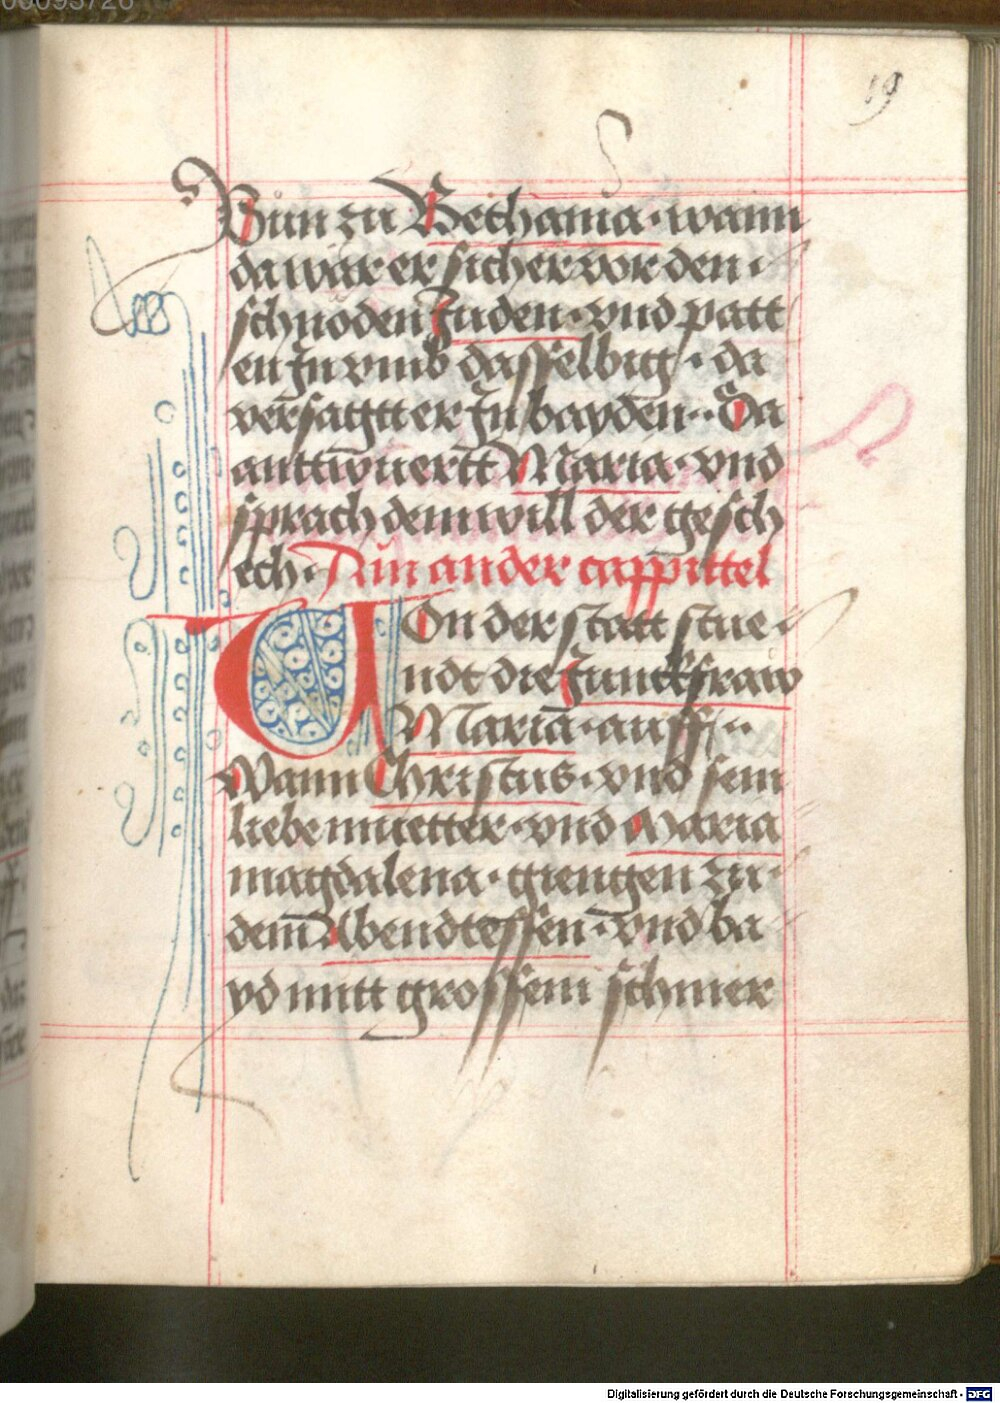 00095726
19
Bun zu Bethania · wann
da wär er sicher vor den ·
schnoden Juden · vnd patt
en Jn vmb dasselbig · da
versagtt er Jn bayden · · Da
anttwuertt Maria · vnd
sprach dem will der gesch
ech · Ain ander cappittel
Von der statt stue ·
ndt die Junckfraw
Maria · auff · ·
Wann Christus · vnd sein
liebe muetter · vnd Maria
magdalena · giengen zu ·
dem Abendtessen · vnd ba
yd mitt grossem schmer
Digitalisierung gefördert durch die Deutsche Forschungsgemeinschaft - DFG